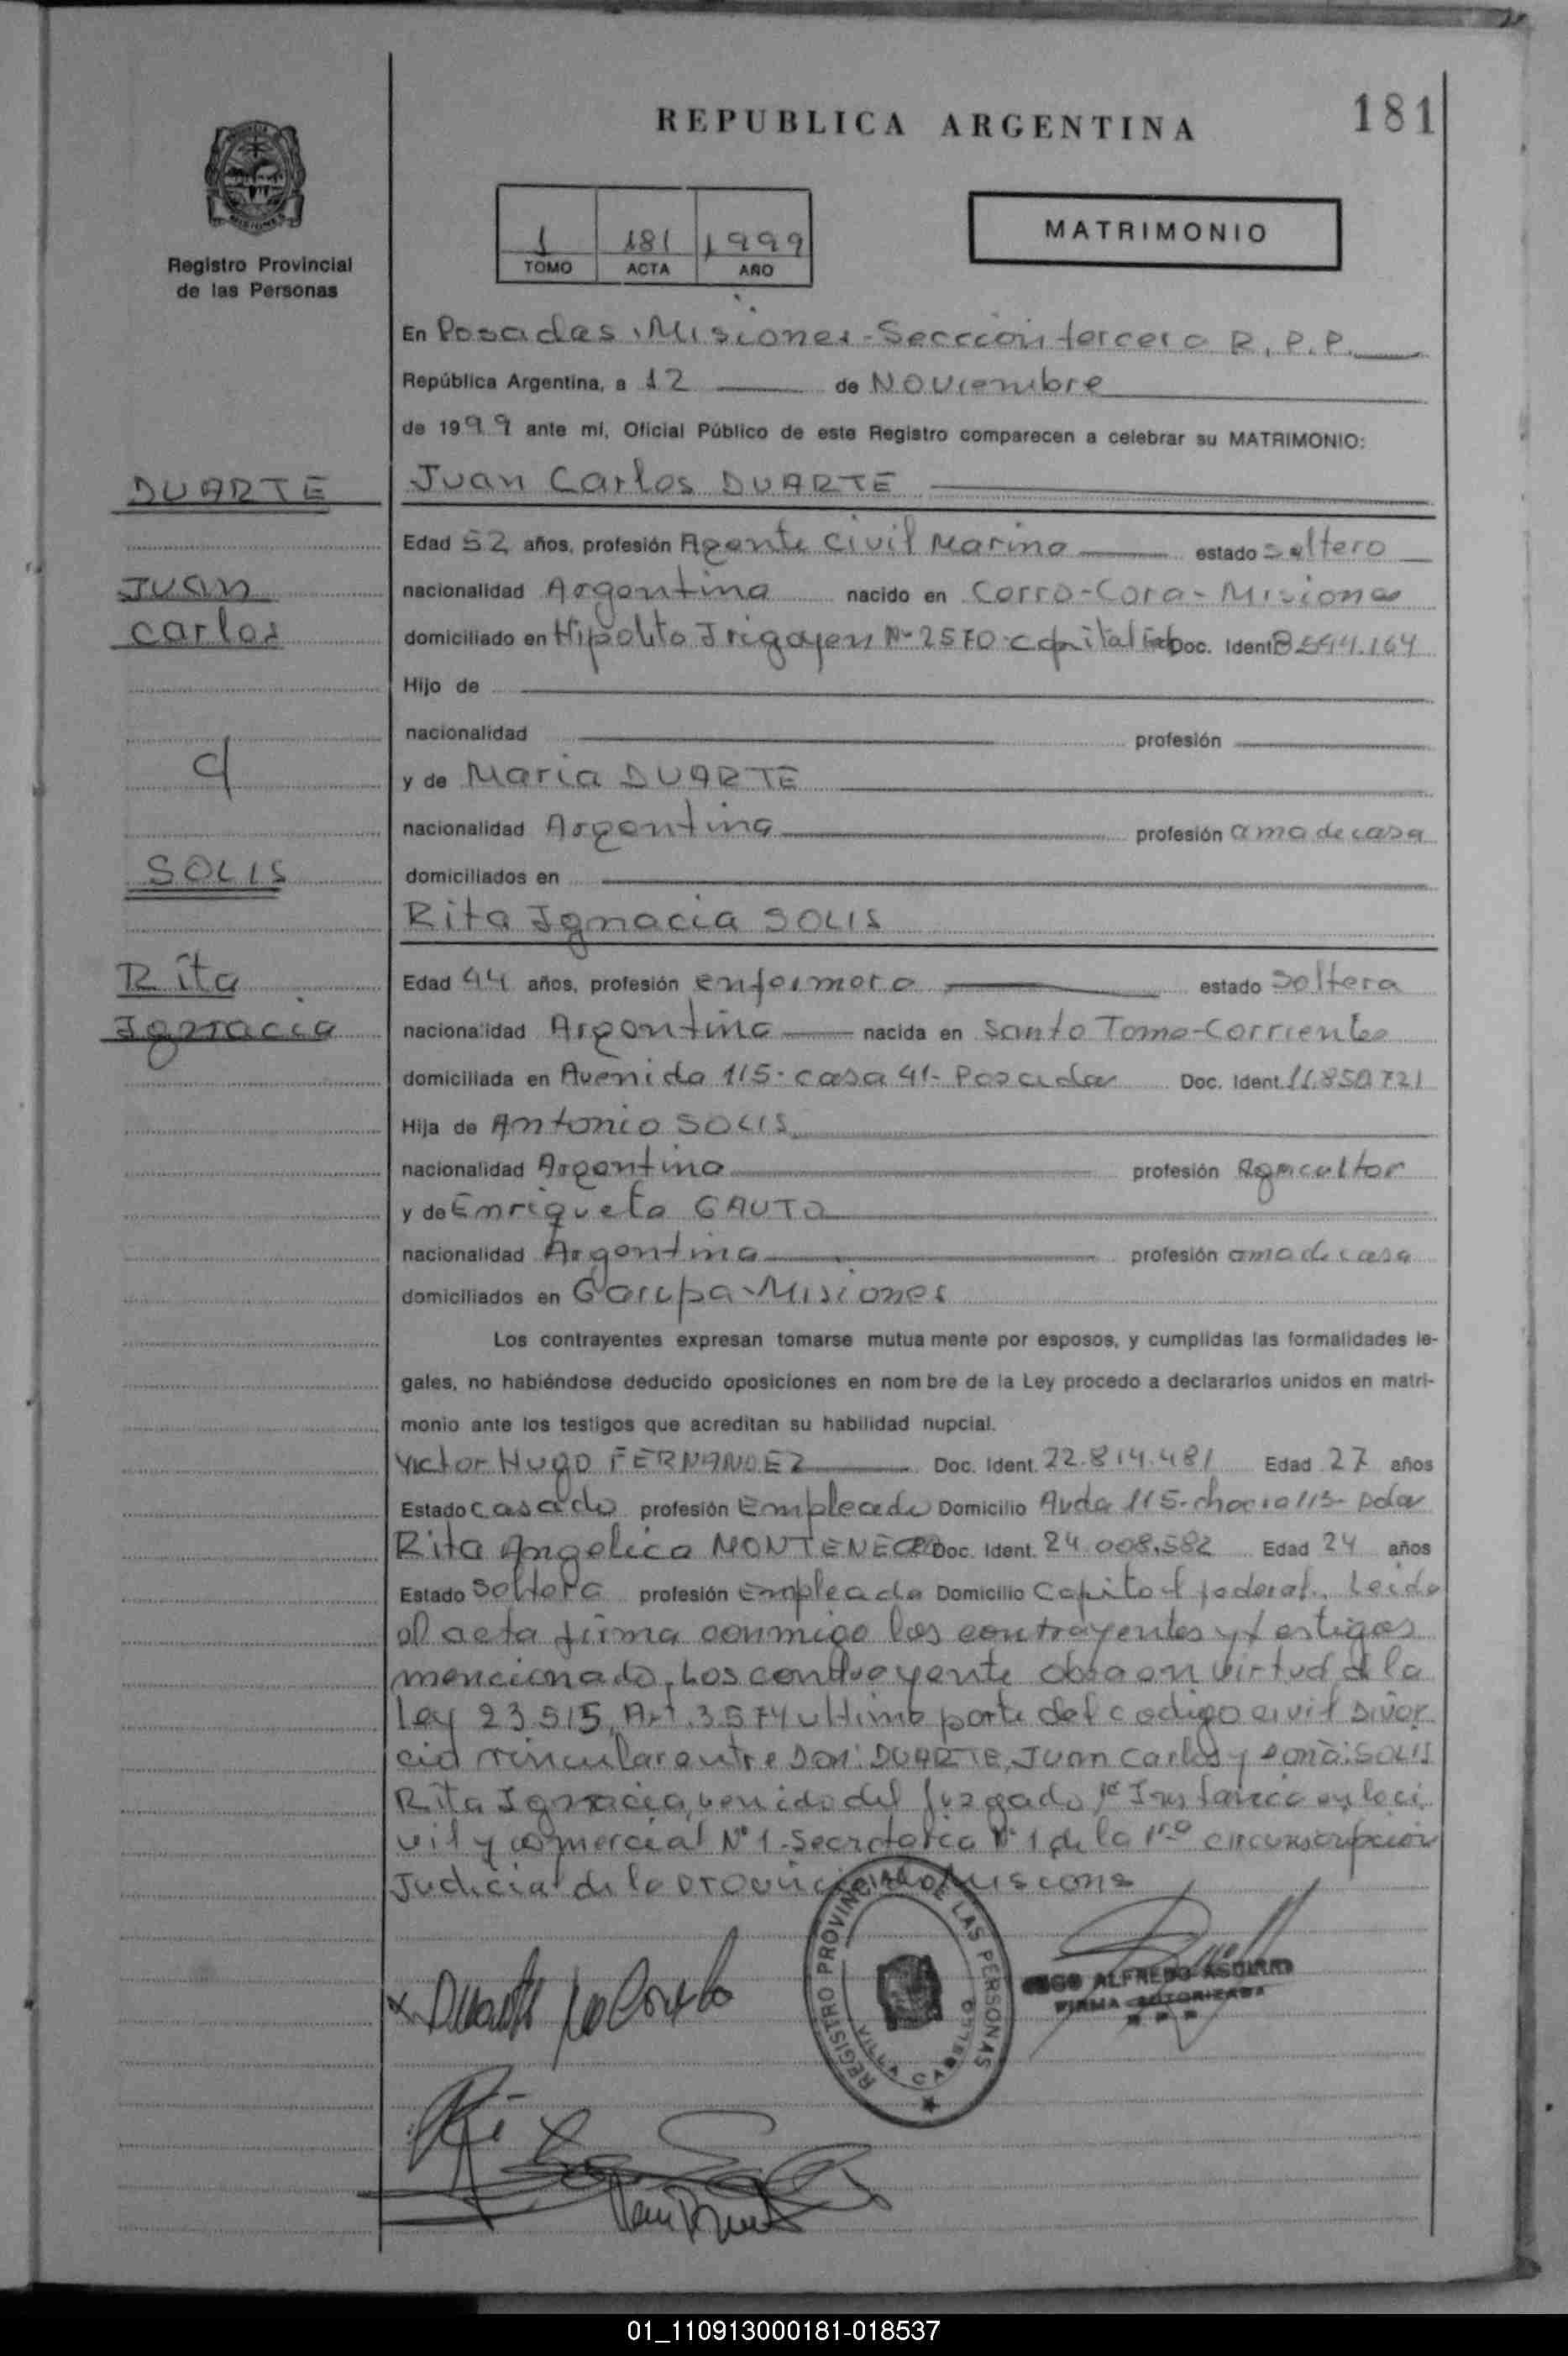 REPUBLICA ARGENTINA
181
Registro Provincial
de las Personas
1 181 1999
TOMO ACTA AÑO
MATRIMONIO
En Posadas, Misiones - Seccion tercera R. P. P.
República Argentina, a 12 de Noviembre
de 1999 ante mí, Oficial Público de este Registro comparecen a celebrar su MATRIMONIO:
DUARTE
Juan Carlos DUARTE
Edad 52 años, profesión Agente Civil Marina estado soltero
Juan
nacionalidad Argentina nacido en Cerro-Cora-Misiones
Carlos
domiciliado en Hipolito Irigoyen Nº 2570 capital Doc. Ident 8.544.164
Hijo de
nacionalidad profesión
y de Maria DUARTE
nacionalidad Argentina profesión ama de casa
SOLIS
domiciliados en
Rita Ignacia SOLIS
Rita
Edad 44 años, profesión enfermera estado soltera
Ignacia
nacionalidad Argentina nacida en Santo Tome-Corrientes
domiciliada en Avenida 115- casa 41- Posadas Doc. Ident. 11.850.721
Hija de Antonio SOLIS
nacionalidad Argentina profesión Agricultor
y de Enriqueta GAUTO
nacionalidad Argentina profesión ama de casa
domiciliados en Garupa-Misiones
Los contrayentes expresan tomarse mutua mente por esposos, y cumplidas las formalidades le-
gales, no habiéndose deducido oposiciones en nom bre de la Ley procedo a declararlos unidos en matri-
monio ante los testigos que acreditan su habilidad nupcial.
Victor Hugo FERNANDEZ Doc. Ident. 22.814.481 Edad 27 años
Estado casado profesión Empleado Domicilio Avda 115- chacra 115- pdas
Rita Angelica MONTENEGRO Doc. Ident. 24.008.582 Edad 24 años
Estado Soltera profesión Empleada Domicilio Capital federal. Leida
el acta firma conmigo los contrayentes y testigos
mencionado. Los contrayente obra en virtud a la
Ley 23.515, Art. 3574 ultima parte del codigo civil Divor
cio vincular entre Don: DUARTE, Juan Carlos y Doña: SOLIS
Rita Ignacia, venido del Juzgado 1º Instancia en lo ci
vil y comercial Nº 1 - Secretaria Nº 1 de la 1ra circunscripcion
Judicial de la provincia de Misiones
REGISTRO PROVINCIAL DE LAS PERSONAS
VILLA CABELLO
HUGO ALFREDO AGUIRRE
FIRMA AUTORIZADA
Duarte Juan Carlos
01_110913000181-018537